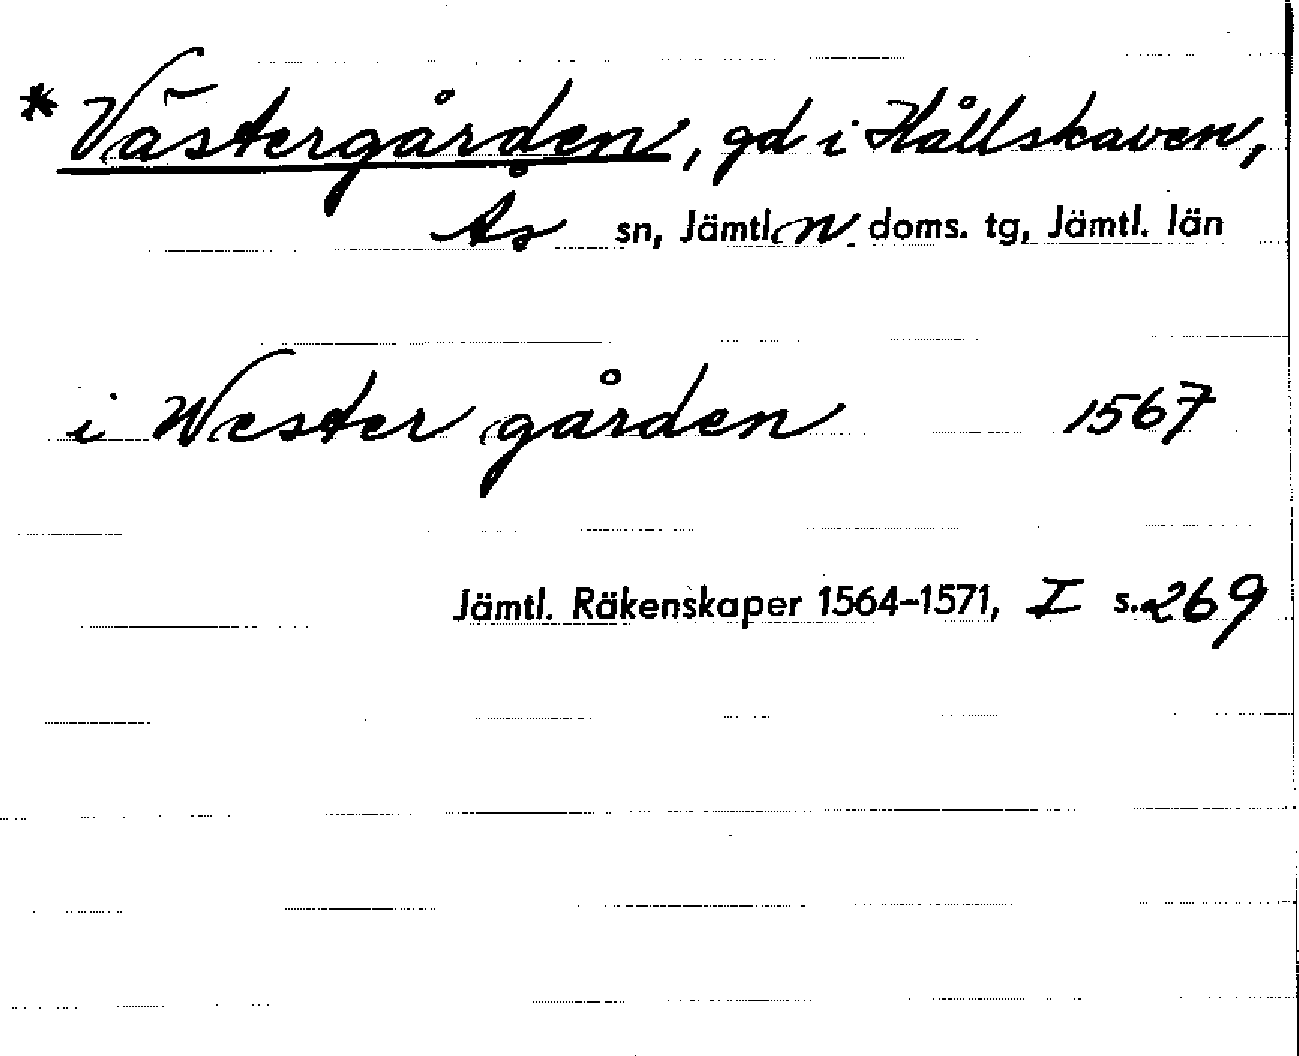 * Västergården, gd i Hållskaven,
Ås sn, Jämtl. n. doms. tg, Jämtl. län
i Wester gården 1567
Jämtl. Räkenskaper 1564-1571, I s. 269